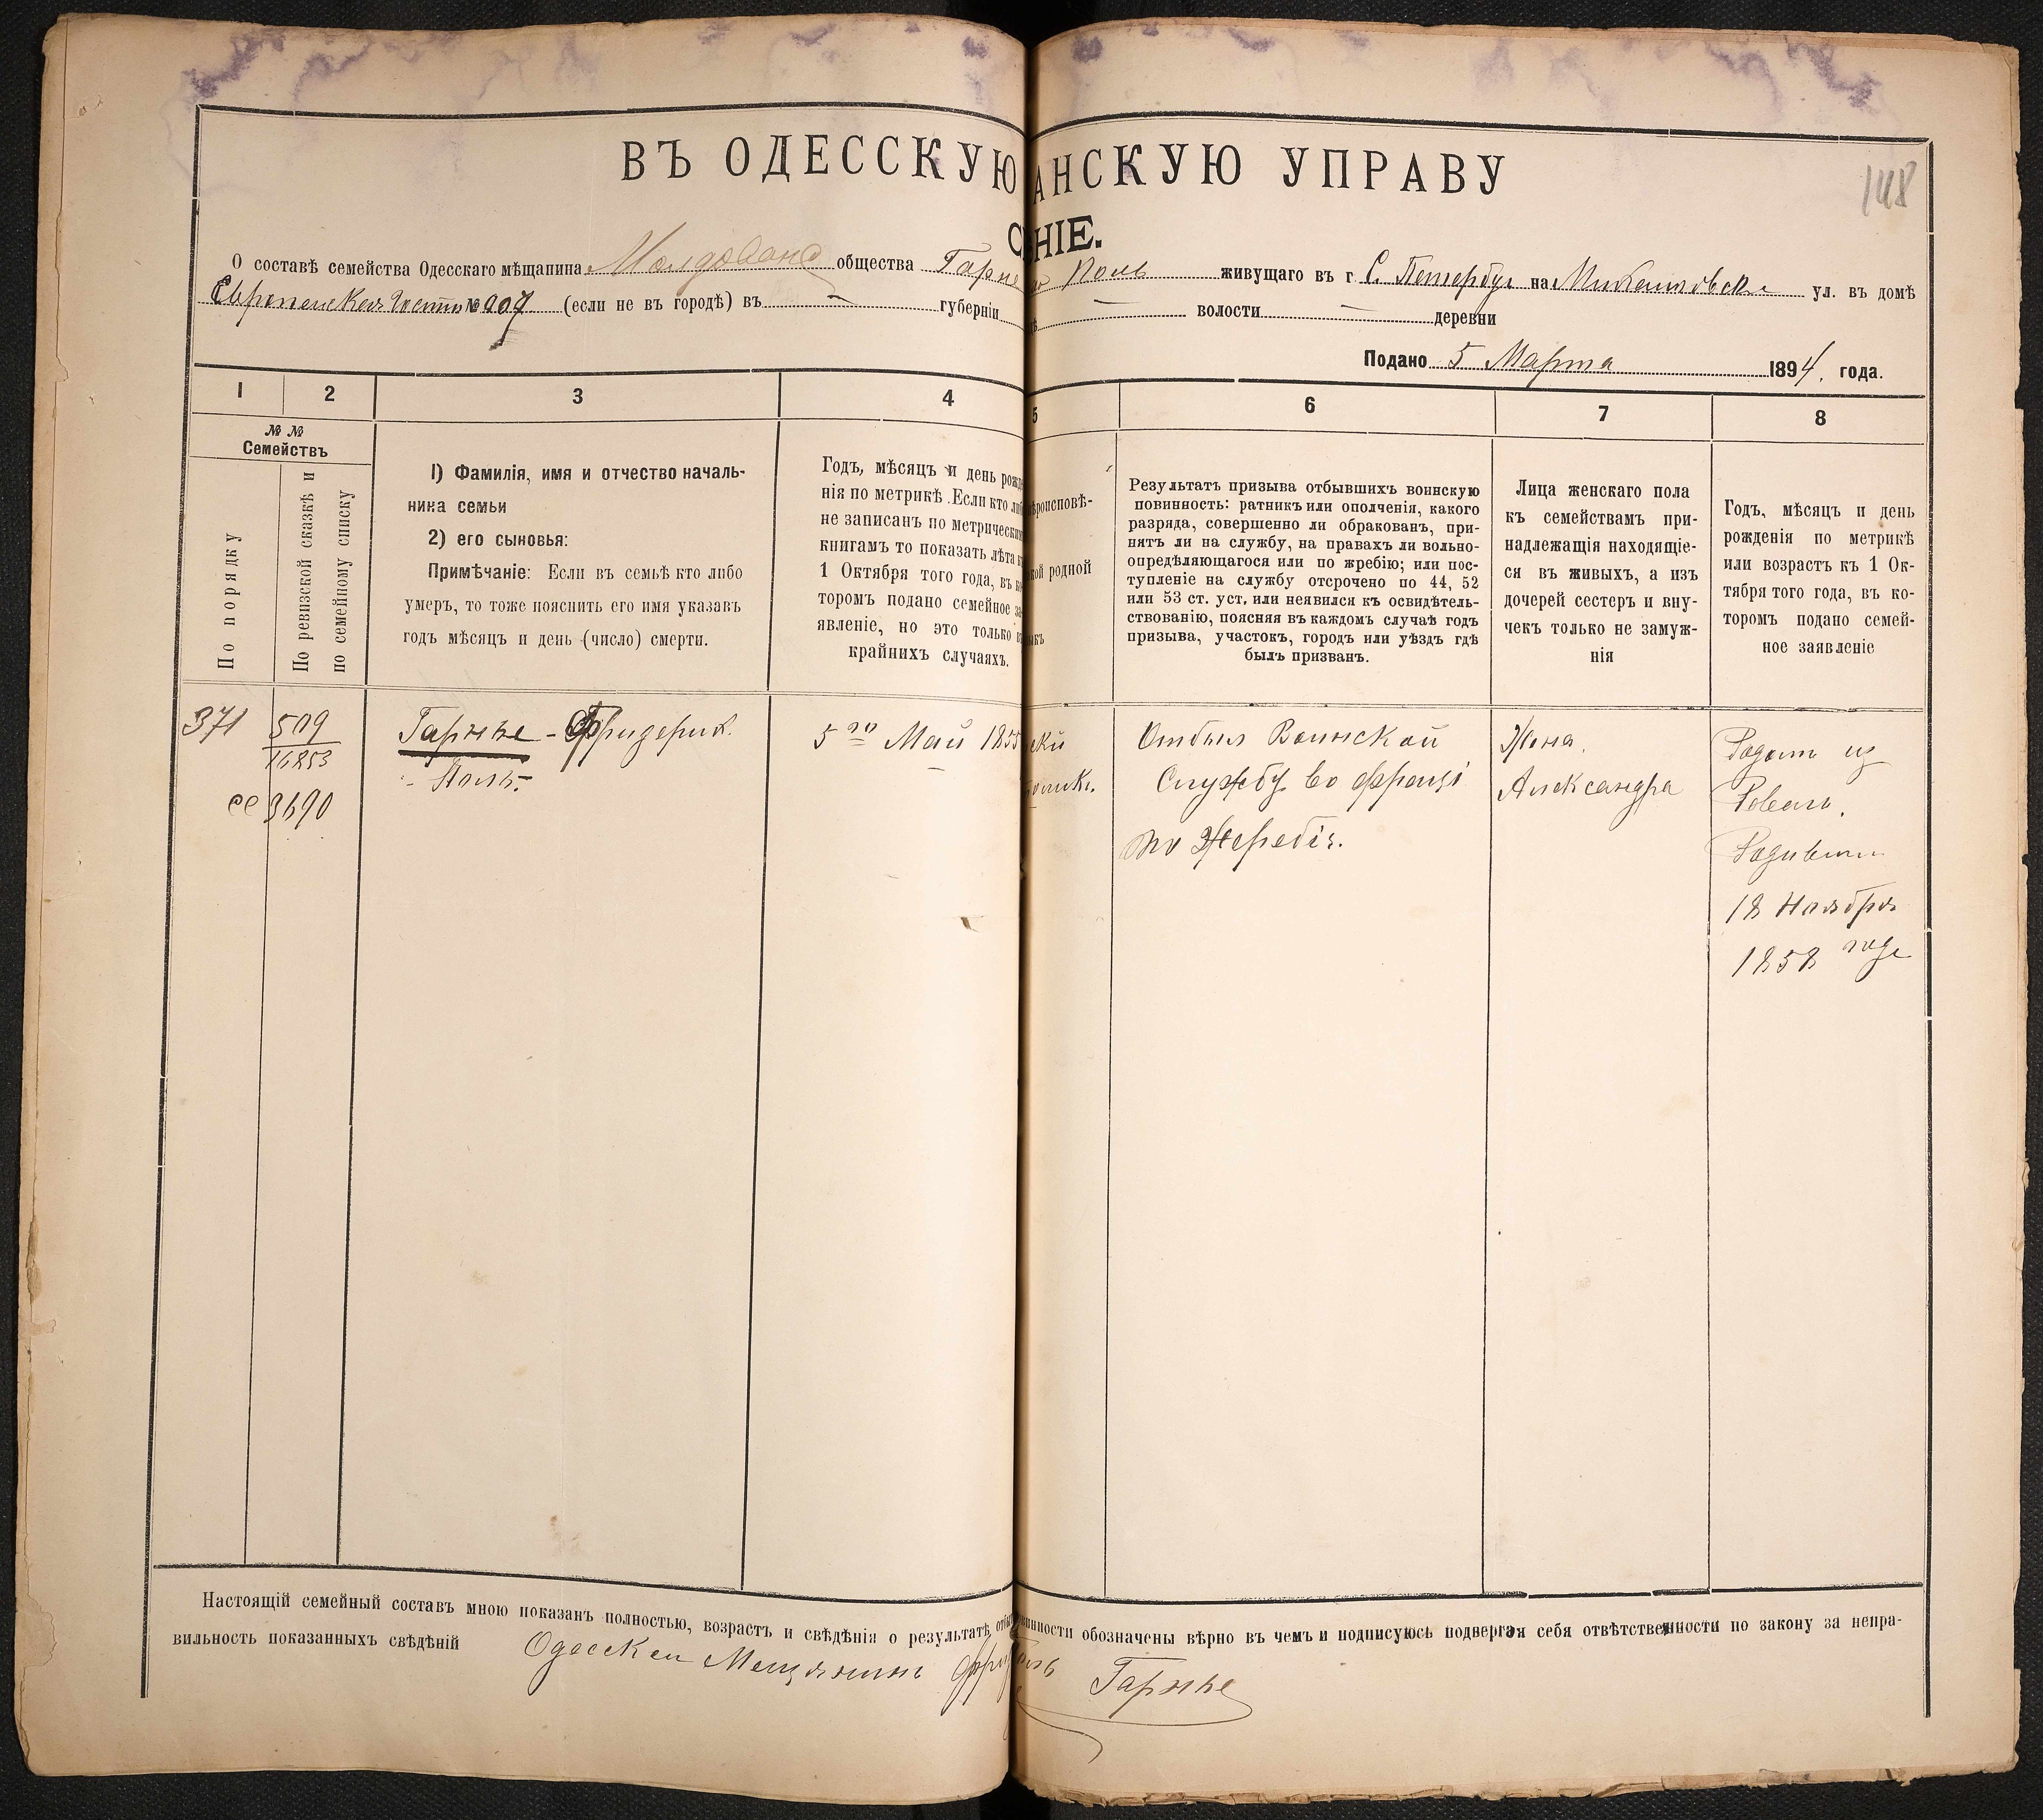 ВЪ ОДЕССКУЮ АНСКУЮ УПРАВУ
148
НІЕ.
О составѣ семейства Одесскаго мѣщанина общества Гарнье Поль живущаго въ г С. Петербург на ул. въ домѣ
Европейская № 207 (если не въ городѣ) въ — губерніи — волости — деревни
Подано 5 Марта 1894. года.
1 2 3 4 5 6 7 8
№ №
Семействъ
По порядку
По ревизской сказкѣ и
по семейному списку
1) Фамилія, имя и отчество началь-
ника семьи
2) его сыновья:
Примѣчаніе: Если въ семьѣ кто либо
умеръ, то тоже пояснить его имя указавъ
годъ мѣсяцъ и день (число) смерти.
Годъ, мѣсяцъ и день рожд
нія по метрикѣ. Если кто ли
не записанъ по метрическим
книгамъ то показать лѣта к
1 Октября того года, въ ко
торомъ подано семейное за
явленіе, но это только в
крайнихъ случаяхъ.
ѣроисповѣ-
кой родной
Результатъ призыва отбывшихъ воинскую
повинность: ратникъ или ополченія, какого
разряда, совершенно ли обракованъ, при-
нятъ ли на службу, на правахъ ли вольно-
опредѣляющагося или по жребію; или пос-
тупленіе на службу отсрочено по 44, 52
или 53 ст. уст. или неявился къ освидѣтель-
ствованію, поясняя въ каждомъ случаѣ годъ
призыва, участокъ, городъ или уѣздъ гдѣ
былъ призванъ.
Лица женскаго пола
къ семействамъ при-
надлежащія находящіе-
ся въ живыхъ, а изъ
дочерей сестеръ и вну-
чекъ только не замуж-
нія
Годъ, мѣсяцъ и день
рожденія по метрикѣ
или возрастъ къ 1 Ок-
тября того года, въ ко-
торомъ подано семей-
ное заявленіе
371
509
16853
3690
Гарнье - Фридерик.
- Поль -
5го Май 1855
Отбыл Воинской
Службу во франці
по Жребіе.
Жена.
Александра
Родом из
Ревель.
18 Ноября
1858 года
Настоящій семейный составъ мною показанъ полностью, возрастъ и свѣдѣнія о результатѣ отбы винности обозначены вѣрно въ чемъ и подписуюсь подвергая себя отвѣтственности по закону за непра-
вильность показанныхъ свѣдѣній Мещянинъ Гарнье